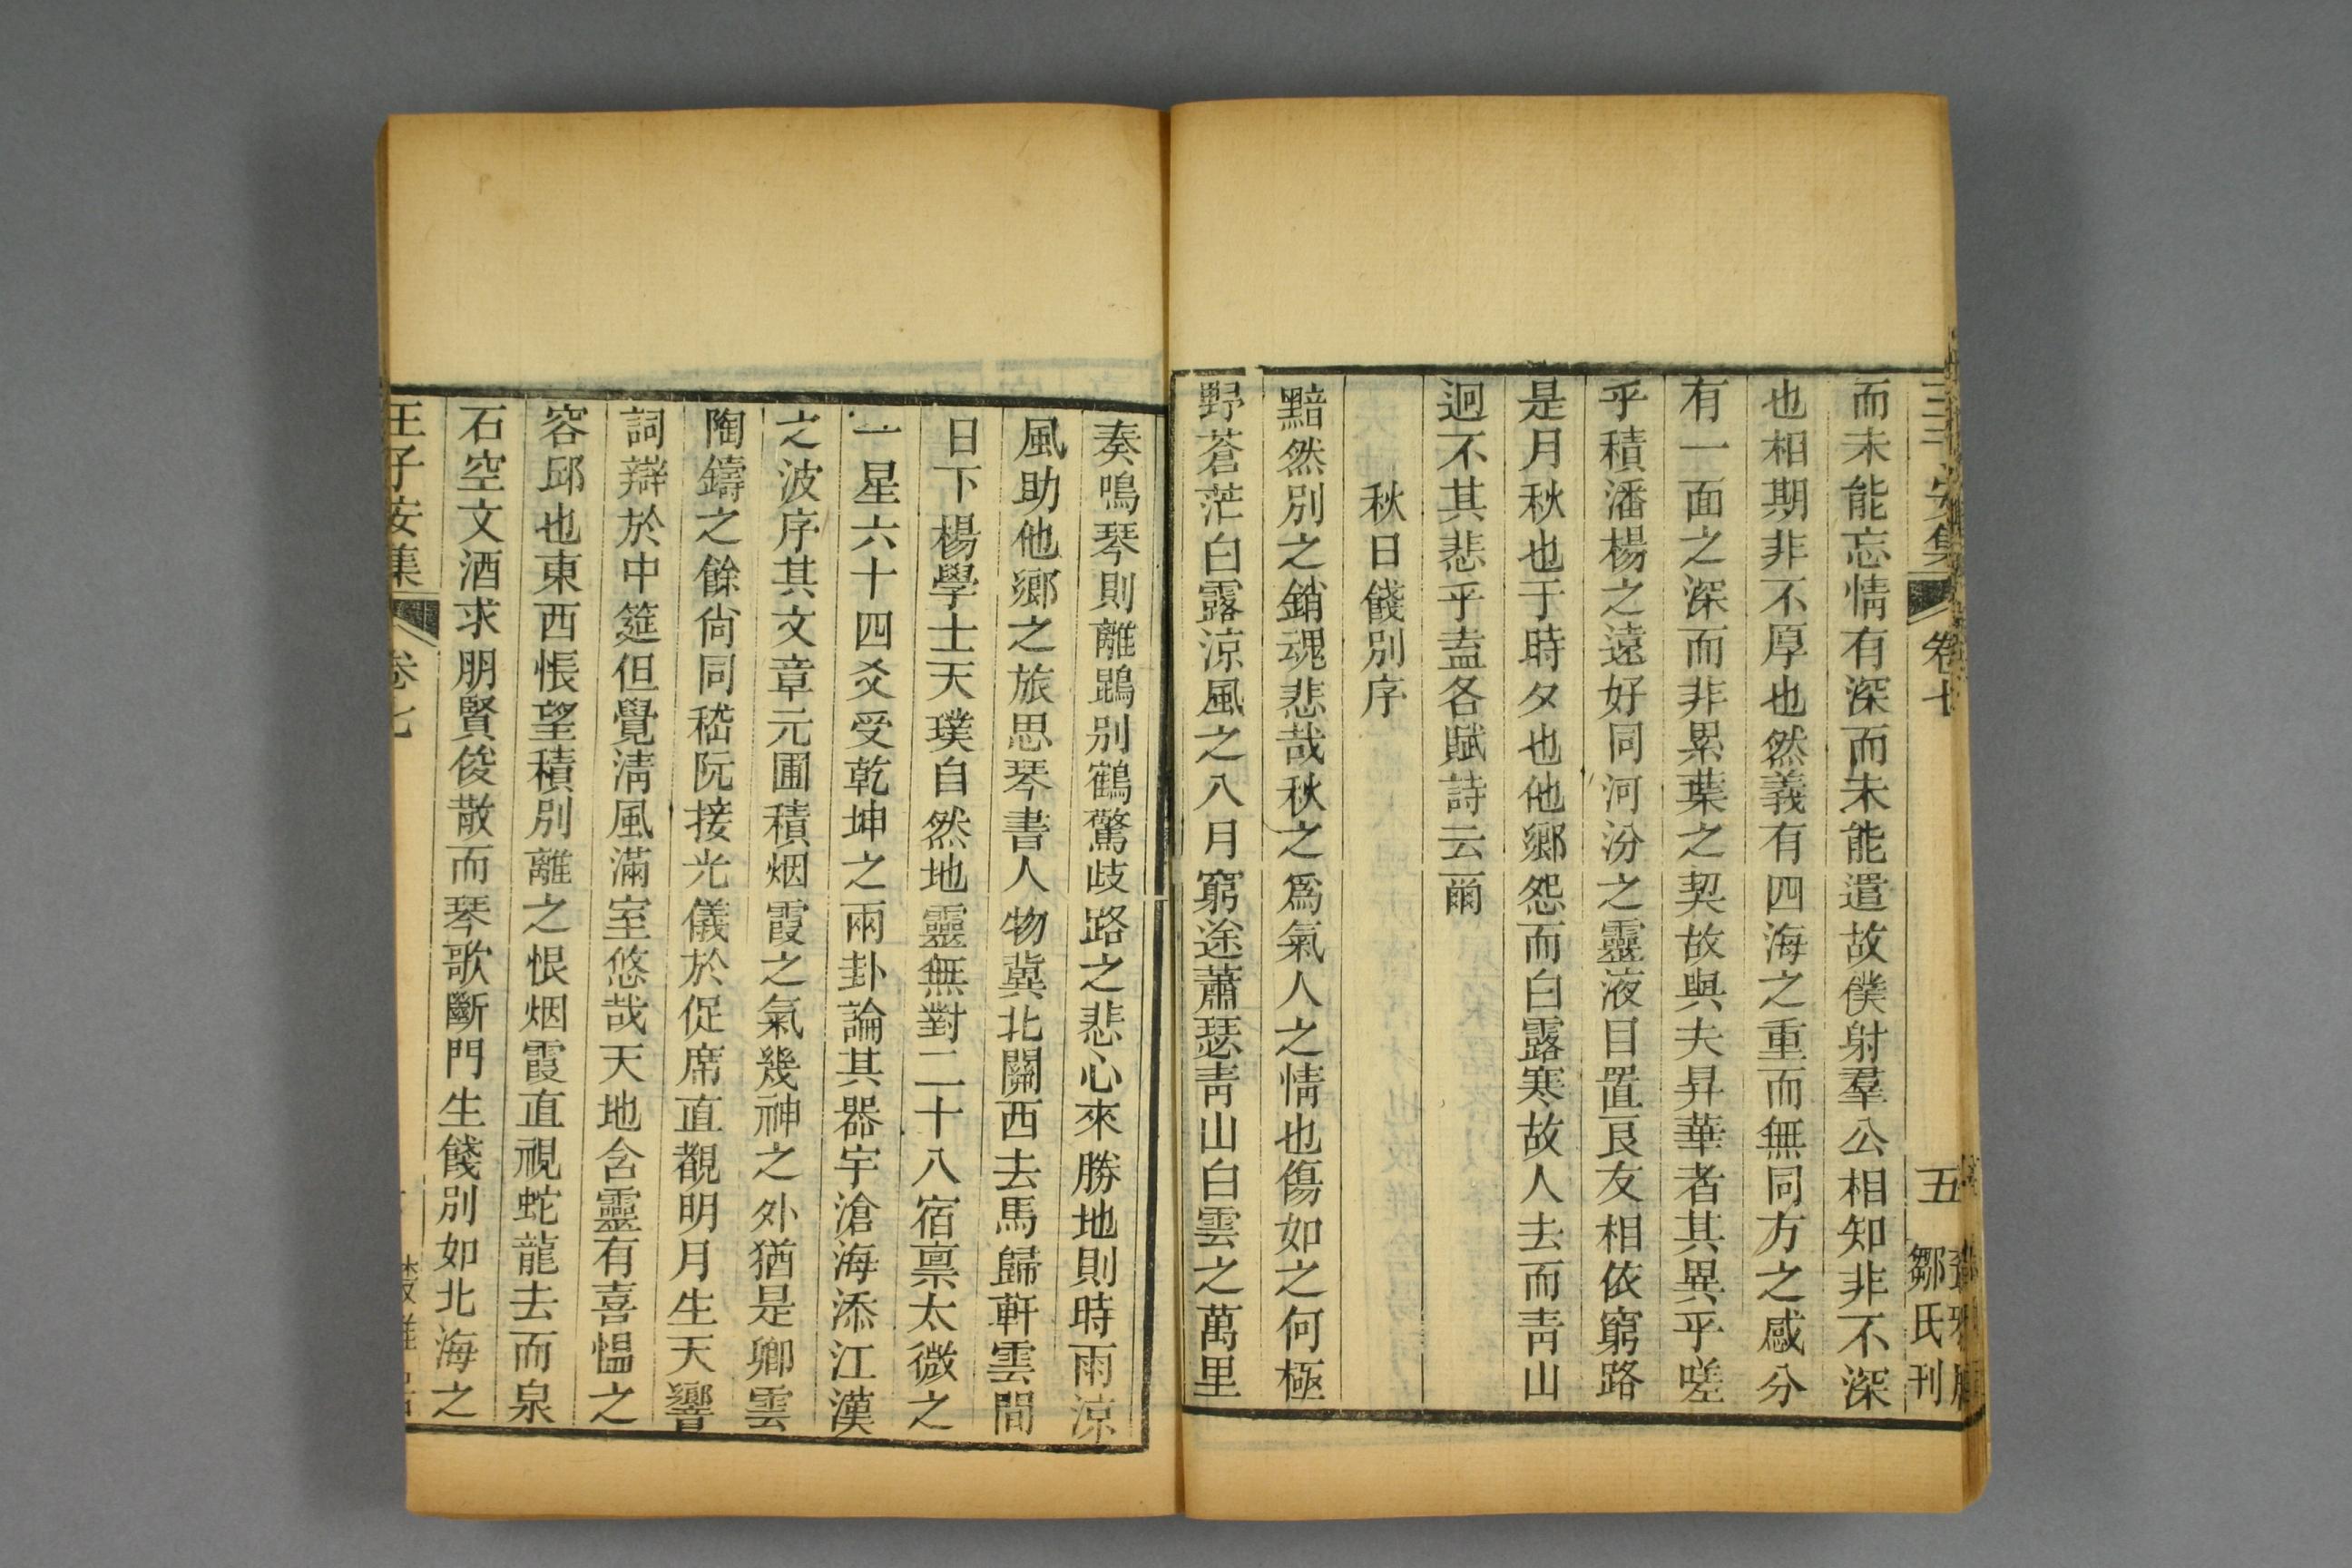 王子安集 卷七 五 鄒氏刊
而未能忘情有深而未能遣故僕射羣公相知非不深
也相期非不厚也然義有四海之重而無同方之感分
有一面之深而非累葉之契故與夫昇華者其異乎嗟
乎積潘楊之遠好同河汾之靈液目置良友相依窮路
是月秋也于時夕也他鄉怨而白露寒故人去而青山
迥不其悲乎盍各賦詩云爾
秋日餞別序
黯然別之銷魂悲哉秋之爲氣人之情也傷如之何極
野蒼茫白露涼風之八月窮途蕭瑟青山白雲之萬里
奏鳴琴則離鵾別鶴驚歧路之悲心來勝地則時雨涼
風助他鄉之旅思琴書人物冀北關西去馬歸軒雲間
日下楊學士天璞自然地靈無對二十八宿稟太微之
一星六十四爻受乾坤之兩卦論其器宇滄海添江漢
之波序其文章元圃積烟霞之氣幾神之外猶是卿雲
陶鑄之餘尙同嵇阮接光儀於促席直觀明月生天響
詞辯於中筵但覺清風滿室悠哉天地含靈有喜愠之
容邱也東西悵望積別離之恨烟霞直視蛇龍去而泉
石空文酒求朋賢俊散而琴歌斷門生餞別如北海之
王子安集 卷七